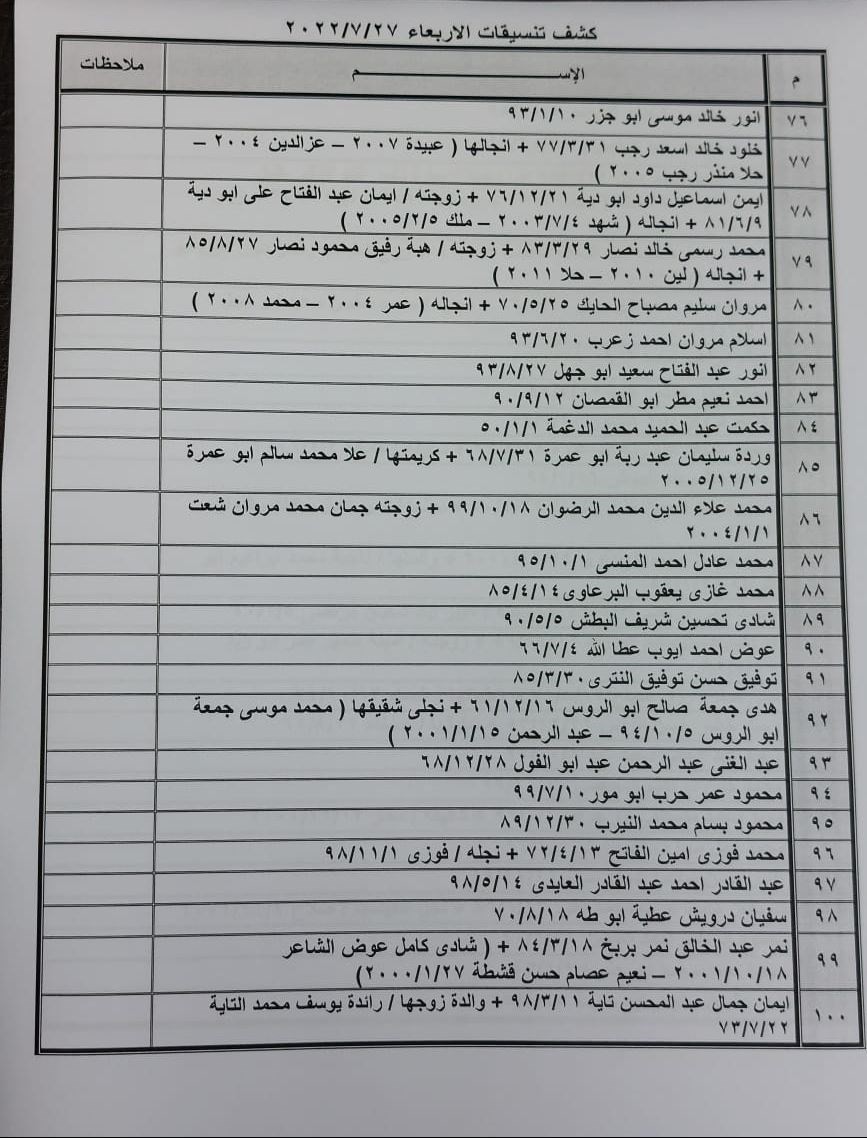 كشف تنسيقات الاربعاء ٢٠٢٢/٧/٢٧
م الإســــــم ملاحظات
٧٦ انور خالد موسى ابو جزر ٩٣/١/١٠
٧٧ خلود خالد اسعد رجب ٧٧/٣/٣١ + انجالها ( عبيدة ٢٠٠٧ – عزالدين ٢٠٠٤ –
حلا منذر رجب ٢٠٠٥ )
٧٨ ايمن اسماعيل داود ابو دية ٧٦/١٢/٢١ + زوجته / ايمان عبد الفتاح على ابو دية
٨١/٦/٩ + انجاله ( شهد ٢٠٠٣/٧/٤ – ملك ٢٠٠٥/٢/٥ )
٧٩ محمد رسمى خالد نصار ٨٣/٣/٢٩ + زوجته / هبة رفيق محمود نصار ٨٥/٨/٢٧
+ انجاله ( لين ٢٠١٠ – حلا ٢٠١١ )
٨٠ مروان سليم مصباح الحايك ٧٠/٥/٢٥ + انجاله ( عمر ٢٠٠٤ – محمد ٢٠٠٨ )
٨١ اسلام مروان احمد زعرب ٩٣/٦/٢٠
٨٢ انور عبد الفتاح سعيد ابو جهل ٩٣/٨/٢٧
٨٣ احمد نعيم مطر ابو القمصان ٩٠/٩/١٢
٨٤ حكمت عبد الحميد محمد الدغمة ٥٠/١/١
٨٥ وردة سليمان عبد ربة ابو عمرة ٦٨/٧/٣١ + كريمتها / علا محمد سالم ابو عمرة
٢٠٠٥/١٢/٢٥
٨٦ محمد علاء الدين محمد الرضوان ٩٩/١٠/١٨ + زوجته جمان محمد مروان شعت
٢٠٠٤/١/١
٨٧ محمد عادل احمد المنسى ٩٥/١٠/١
٨٨ محمد غازى يعقوب البرعاوى ٨٥/٤/١٤
٨٩ شادى تحسين شريف البطش ٩٠/٥/٥
٩٠ عوض احمد ايوب عطا الله ٦٦/٧/٤
٩١ توفيق حسن توفيق النترى ٨٥/٣/٣٠
٩٢ هدى جمعة صالح ابو الروس ٦١/١٢/١٦ + نجلى شقيقها ( محمد موسى جمعة
ابو الروس ٩٤/١٠/٥ – عبد الرحمن ٢٠٠١/١/١٥ )
٩٣ عبد الغنى عبد الرحمن عبد ابو الفول ٦٨/١٢/٢٨
٩٤ محمود عمر حرب ابو مور ٩٩/٧/١٠
٩٥ محمود بسام محمد النيرب ٨٩/١٢/٣٠
٩٦ محمد فوزى امين الفاتح ٧٢/٤/١٣ + نجله / فوزى ٩٨/١١/١
٩٧ عبد القادر احمد عبد القادر العايدى ٩٨/٥/١٤
٩٨ سفيان درويش عطية ابو طه ٧٠/٨/١٨
٩٩ نمر عبد الخالق نمر بربخ ٨٤/٣/١٨ + ( شادى كامل عوض الشاعر
٢٠٠١/١٠/١٨ – نعيم عصام حسن قشطة ٢٠٠٠/١/٢٧)
١٠٠ ايمان جمال عبد المحسن تاية ٩٨/٣/١١ + والدة زوجها / رائدة يوسف محمد التاية
٧٣/٧/٢٢